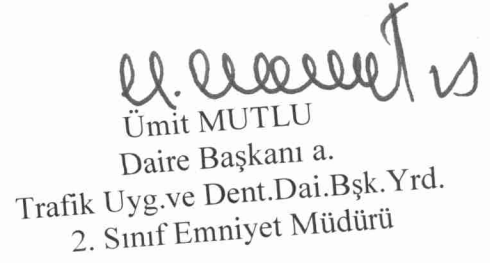 Ümit MUTLU
Daire Başkanı a.
Trafik Uyg.ve Dent.Dai.Bşk.Yrd.
2. Sınıf Emniyet Müdürü